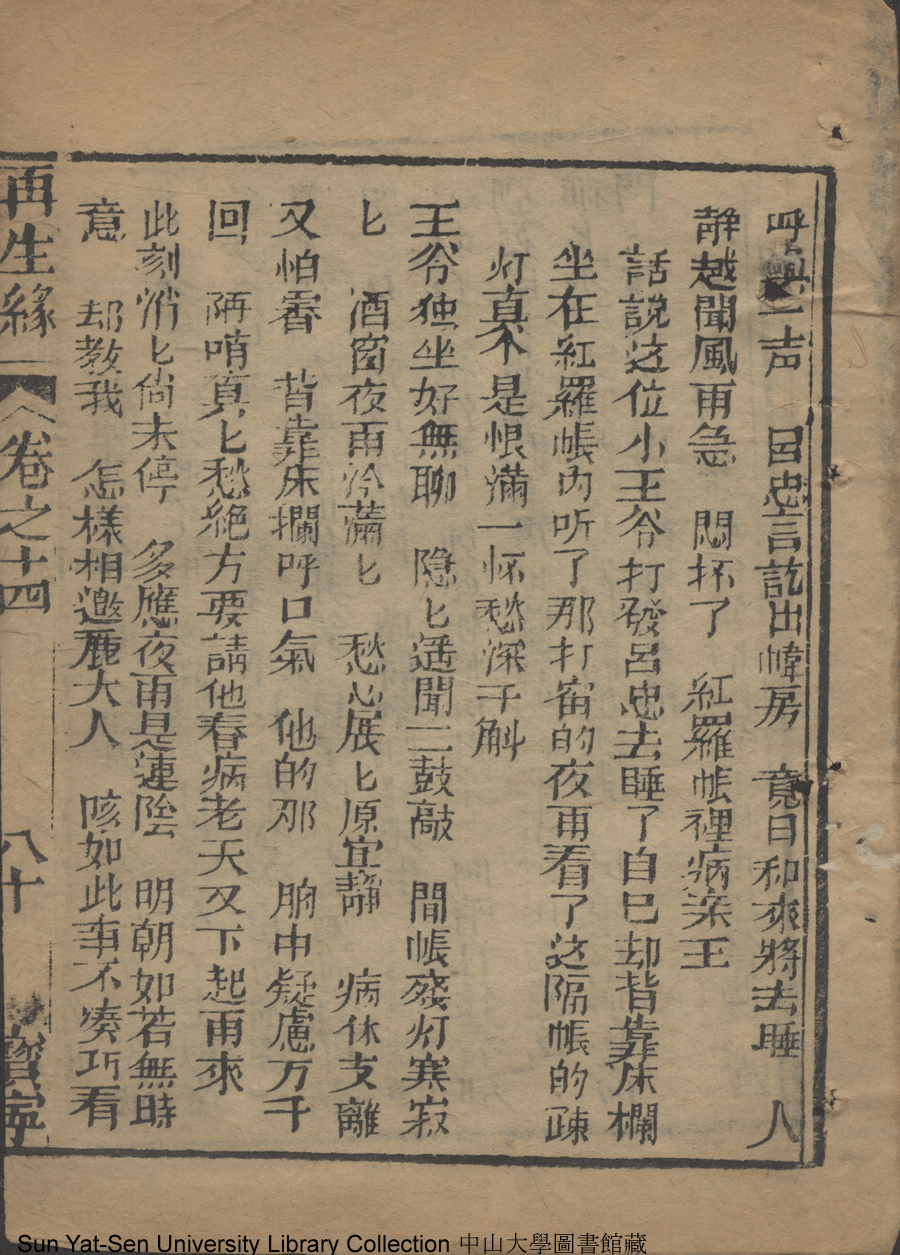 一声　呂忠言訖出幃房　竟自和衣將去睡　人
静越聞風雨急　悶抔了　紅羅帳裡病梁王
話說这位小王爷打發呂忠去睡了自己却背靠床欄
坐在紅羅帳内听了那打窗的夜雨看了这隔帳的疎
灯真个是恨滿一怀愁深千斛
王爷独坐好無聊　隐匕遥聞三鼓敲　間帳殘灯寒寂
匕　洒窗夜雨冷蕭匕　愁心展匕原宜靜　病休支離
又怕霄　背靠床欄呼口氣　他的那　胸中疑慮万千
回　陌哨真匕愁絶方要請他春病老天又下起雨來
此刻悄匕尚未停　多應夜雨是連陰　明朝如若無時
意　却教我　怎樣相邀鹿大人　咳如此事不凑巧看
再生緣　卷之十四　八十　寳寧
Sun Yat-Sen University Library Collection 中山大學圖書館藏